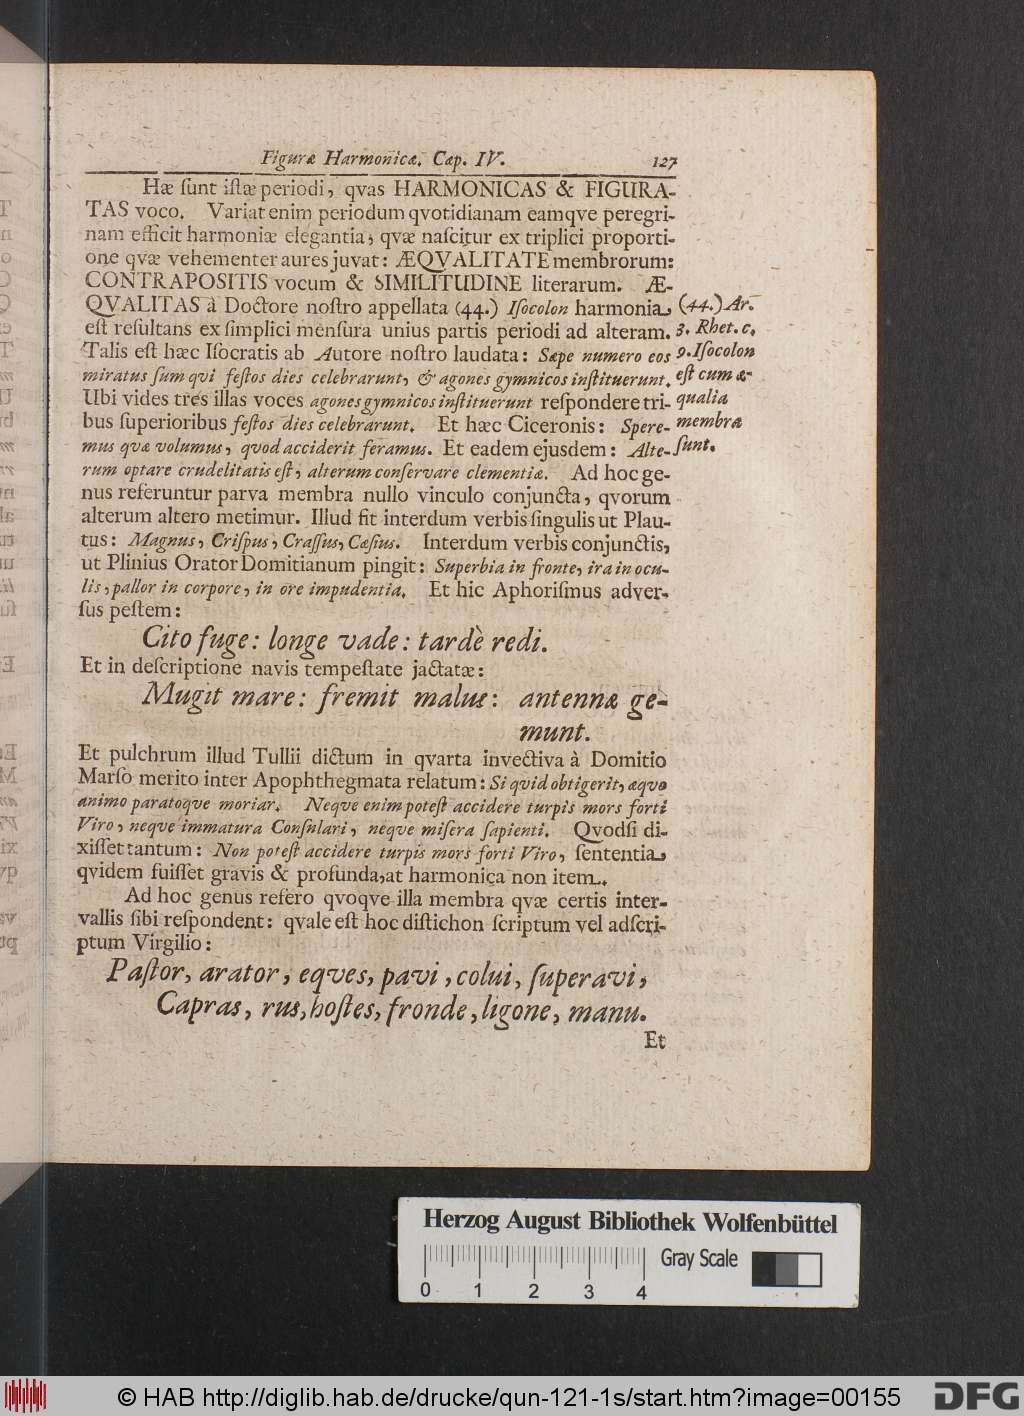 Figuræ Harmonicæ. Cap. IV. 127
Hæ ſunt iſtæ periodi, qvas HARMONICAS & FIGURA-
TAS voco. Variat enim periodum qvotidianam eamqve peregri-
nam efficit harmoniæ elegantia, qvæ naſcitur ex triplici proporti-
one qvæ vehementer aures juvat: ÆQVALITATE membrorum:
CONTRAPOSITIS vocum & SIMILITUDINE literarum. Æ-
QVALITAS à Doctore noſtro appellata (44.) Iſocolon harmonia,
eſt reſultans ex ſimplici menſura unius partis periodi ad alteram.
Talis eſt hæc Iſocratis ab Autore noſtro laudata: Sæpe numero eos
miratus ſum qui feſtos dies celebrarunt, & agones gymnicos inſtituerunt.
Ubi vides tres illas voces agones gymnicos inſtituerunt reſpondere tri-
bus ſuperioribus feſtos dies celebrarunt. Et hæc Ciceronis: Spere-
mus quæ volumus, quod acciderit feramus. Et eadem ejusdem: Alte-
rum optare crudelitatis eſt, alterum conſervare clementiæ. Ad hoc ge-
nus referuntur parva membra nullo vinculo conjuncta, qvorum
alterum altero metimur. Illud fit interdum verbis ſingulis ut Plau-
tus: Magnus, Criſpus, Craſſus, Cæſius. Interdum verbis conjunctis,
ut Plinius Orator Domitianum pingit: Superbia in fronte, ira in ocu-
lis, pallor in corpore, in ore impudentia. Et hic Aphoriſmus adver-
ſus peſtem:
Cito fuge: longe vade: tardè redi.
Et in deſcriptione navis tempeſtate jactatæ:
Mugit mare: fremit malus: antennæ ge-
munt.
Et pulchrum illud Tullii dictum in qvarta invectiva à Domitio
Marſo merito inter Apophthegmata relatum: Si quid obtigerit, æquo
animo paratoqve moriar. Neqve enim poteſt accidere turpis mors forti
Viro, neqve immatura Conſulari, neqve miſera ſapienti. Qvodſi di-
xiſſet tantum: Non poteſt accidere turpis mors forti Viro, ſententia,
qvidem fuiſſet gravis & profunda, at harmonica non item.
Ad hoc genus refero qvoqve illa membra qvæ certis inter-
vallis ſibi reſpondent: qvale eſt hoc diſtichon ſcriptum vel adſcri-
ptum Virgilio:
Paſtor, arator, eqves, pavi, colui, ſuperavi,
Capras, rus, hoſtes, fronde, ligone, manu.
Et
(44.) Ar.
3. Rhet. c.
9. Iſocolon
eſt cum æ-
qualia
membra
ſunt.
Herzog August Bibliothek Wolfenbüttel
Gray Scale
0 1 2 3 4
© HAB http://diglib.hab.de/drucke/qun-121-1s/start.htm?image=00155
DFG